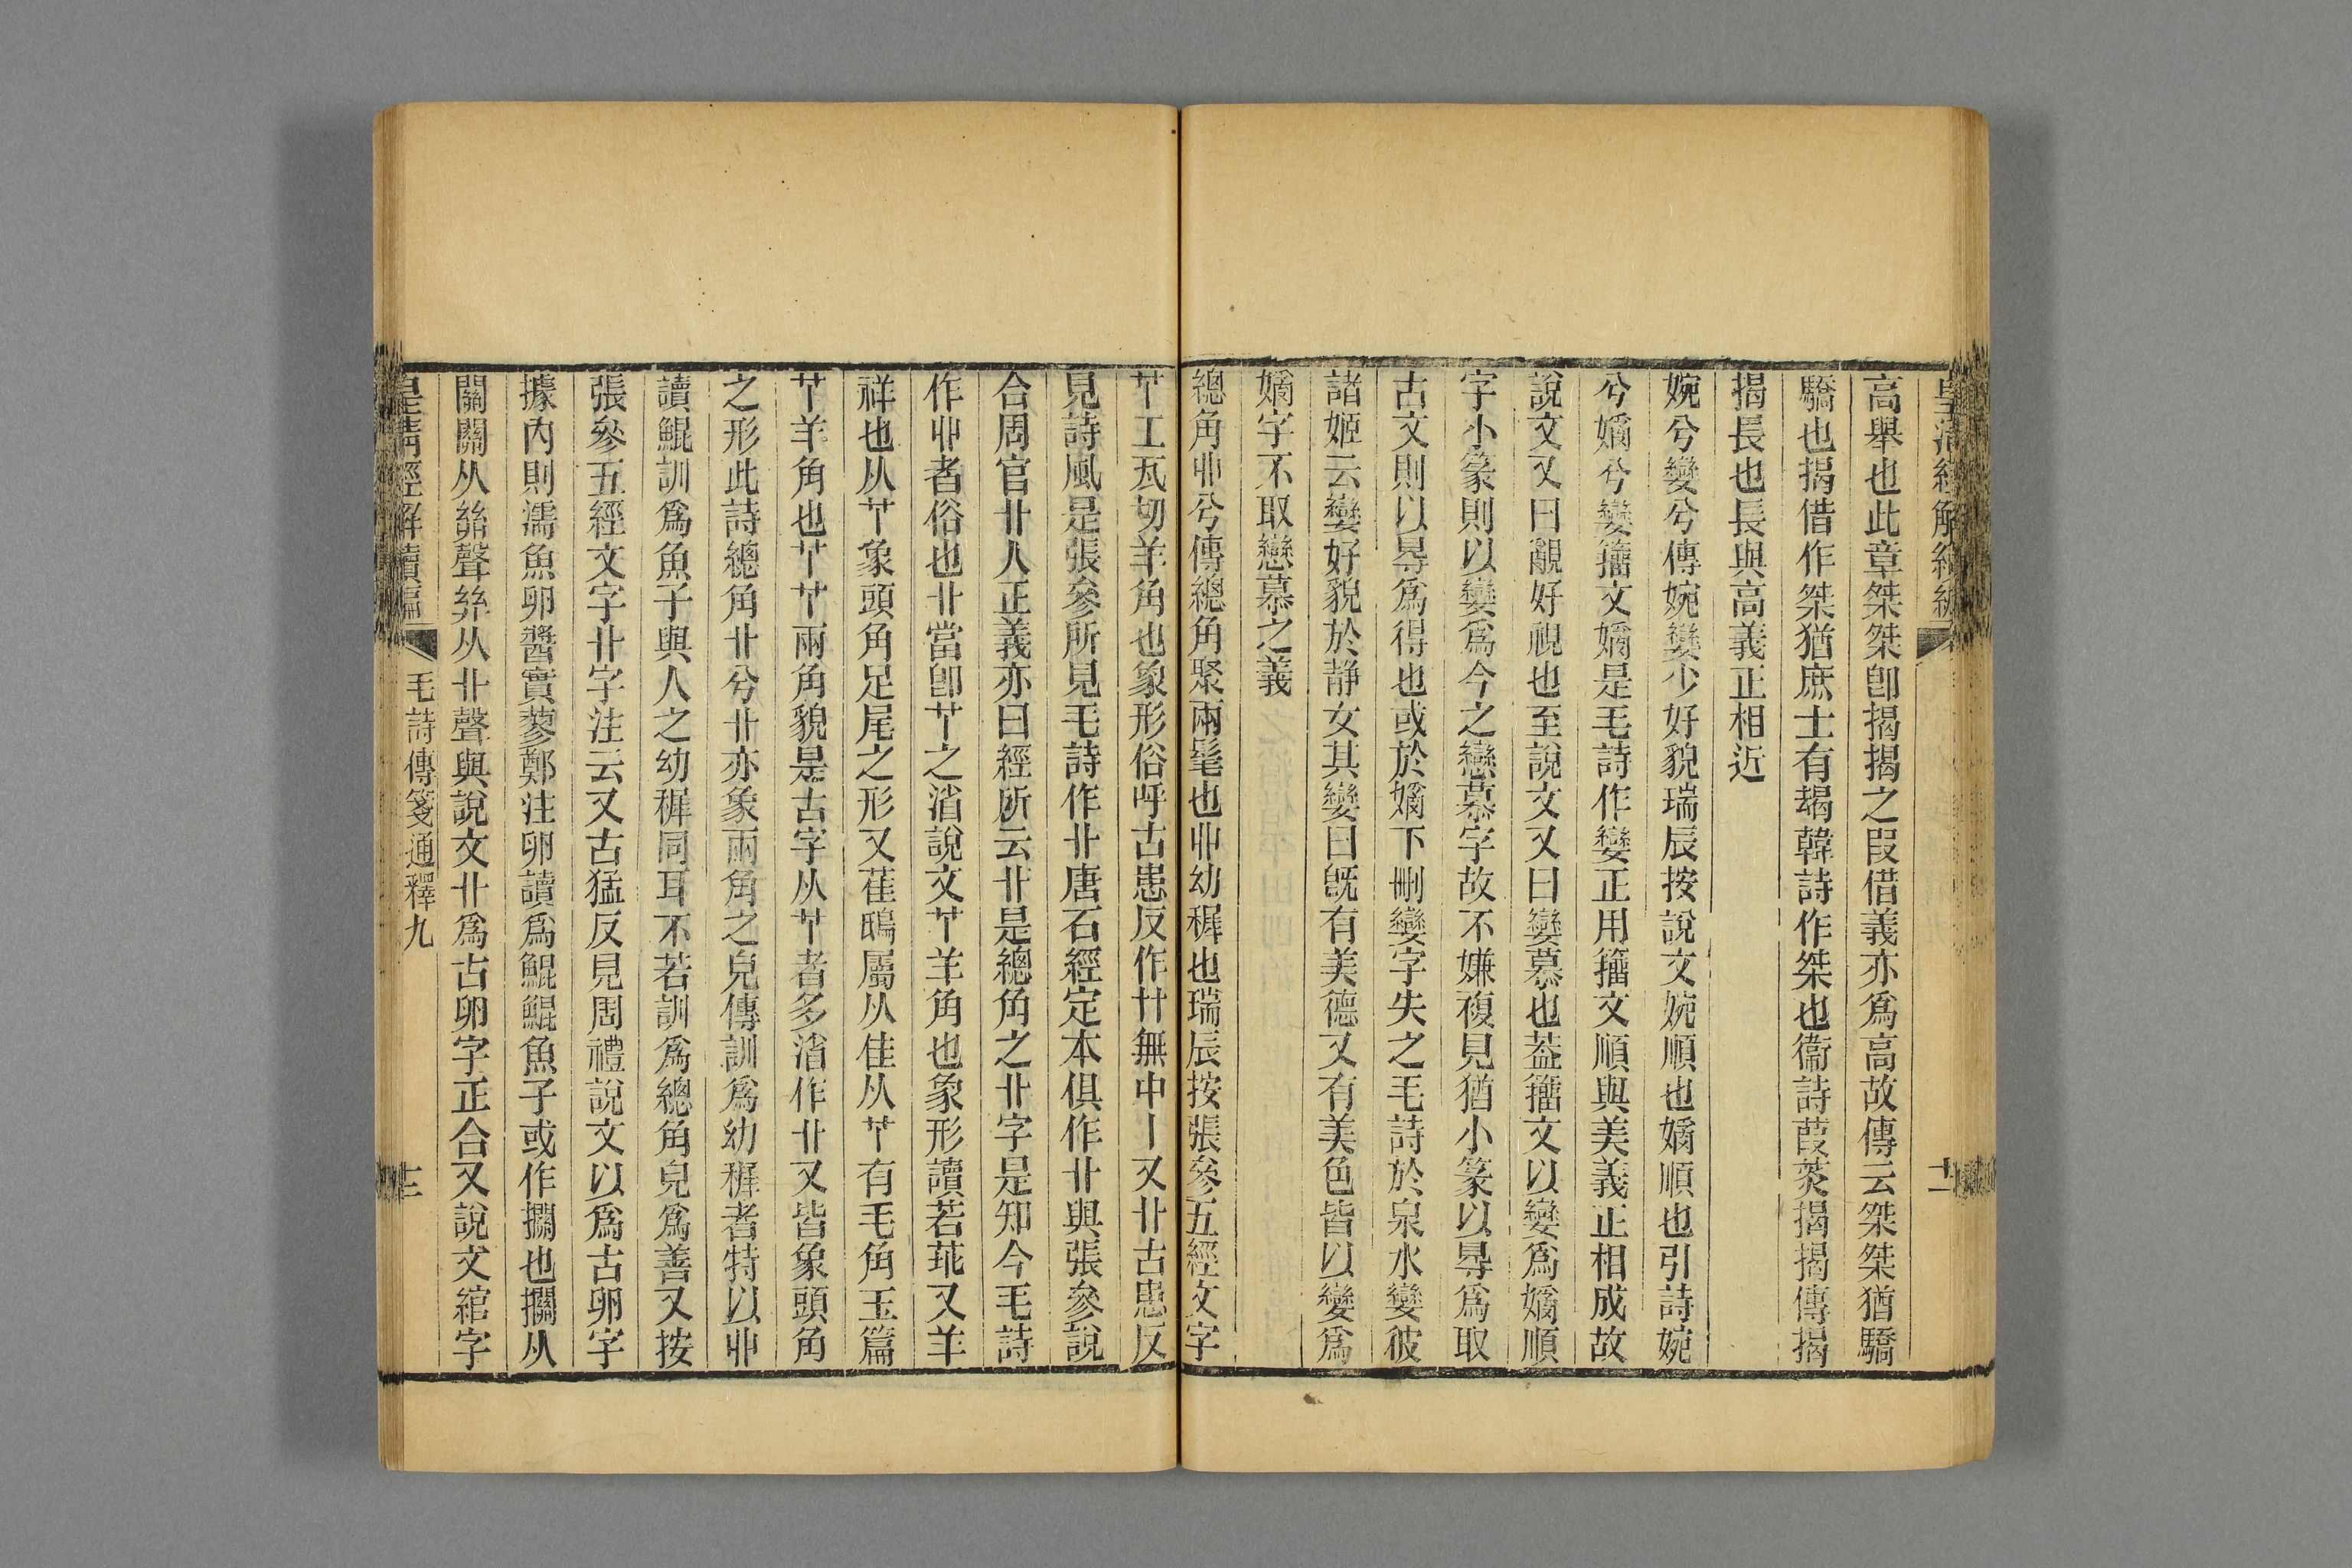 高舉也此章桀桀卽揭揭之叚借義亦爲高故傳云桀桀猶驕
驕也揭借作桀猶庶士有朅韓詩作桀也衞詩葭菼揭揭傳揭
揭長也長與高義正相近
婉兮孌兮傳婉孌少好貌瑞辰按說文婉順也嫡順也引詩婉
兮嫡兮孌籒文嫡是毛詩作孌正用籒文順與美義正相成故
說文又曰覶好視也至說文又曰孌慕也葢籒文以孌爲嫡順
字小篆則以孌爲今之戀慕字故不嫌複見猶小篆以㝵爲取
古文則以㝵爲得也或於嫡下刪孌字失之毛詩於泉水孌彼
諸姬云孌好貌於静女其孌曰旣有美德又有美色皆以孌爲
嫡字不取戀慕之義
總角丱兮傳總角聚兩髦也丱幼穉也瑞辰按張參五經文字
𦫳工瓦切羊角也象形俗呼古患反作廿無中丨又卝古患反
見詩風是張參所見毛詩作卝唐石經定本俱作卝與張參說
合周官卝人正義亦曰經所云卝是總角之卝字是知今毛詩
作丱者俗也卝當卽𦫳之消說文𦫳羊角也象形讀若乖又羊
祥也从𦫳象頭角足尾之形又雈鴟屬从隹从𦫳有毛角玉篇
𦫳羊角也𦫳𦫳兩角貌是古字从𦫳者多消作卝又皆象頭角
之形此詩總角卝兮卝亦象兩角之皃傳訓爲幼穉者特以丱
讀鯤訓爲魚子與人之幼穉同耳不若訓爲總角皃爲善又按
張參五經文字卝字注云又古猛反見周禮說文以爲古卵字
據內則濡魚卵醬實蓼鄭注卵讀爲鯤鯤魚子或作攔也攔从
關關从𢇇聲𢇇从卝聲與說文卝爲古卵字正合又說文綰字
皇淸經解續編
毛詩傳箋通釋九